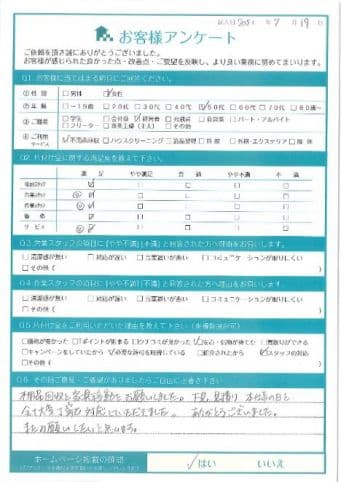 記入日 2021 年 7 月 19 日
お客様アンケート
ご依頼を頂き誠にありがとうございました。
お客様が感じられた良かった点・改善点・ご要望を反映し、より良い業務に努めてまいります。
Q1. お客様に当てはまる項目にご回答ください。
①性別 男性 女性
②年齢 ～19歳 20代 30代 40代 50代 60代 70代 80歳～
③ご職業 学生 会社員 経営者 公務員 自営業 パート・アルバイト
フリーター 専業主婦(夫) その他
④ご利用サービス 不用品回収 ハウスクリーニング 遺品整理 外構・エクステリア 解体
Q2. 片付け堂に関する満足度を教えて下さい。
満足 やや満足 普通 やや不満 不満
価格
サービス
Q3. 営業スタッフの項目に「やや不満」「不満」と回答された方へ理由をお伺いします。
清潔感が無い 対応が遅い 言葉遣いが悪い コミュニケーションが取りにくい
その他( )
Q4. 作業スタッフの項目に「やや不満」「不満」と回答された方へ理由をお伺いします。
清潔感が無い 対応が遅い 言葉遣いが悪い コミュニケーションが取りにくい
その他( )
Q5. 片付け堂をご利用いただいた理由を教えて下さい(※複数選択可)
価格が安かった ポイントが貯まる チラシが良かった 安心・信頼が持てた 買取りができる
キャンペーンをしていたから 必要な許可を取得している 紹介されたから スタッフの対応
その他( )
Q6. その他ご意見・ご要望がありましたらご自由にお書き下さい
不用品回収と家具移動をお願いしました。下見、見積り、本作業の日と
全て大変丁寧な対応していただきました。ありがとうございました。
またお願いしたいと思います。
ホームページ掲載の可否
はい いいえ